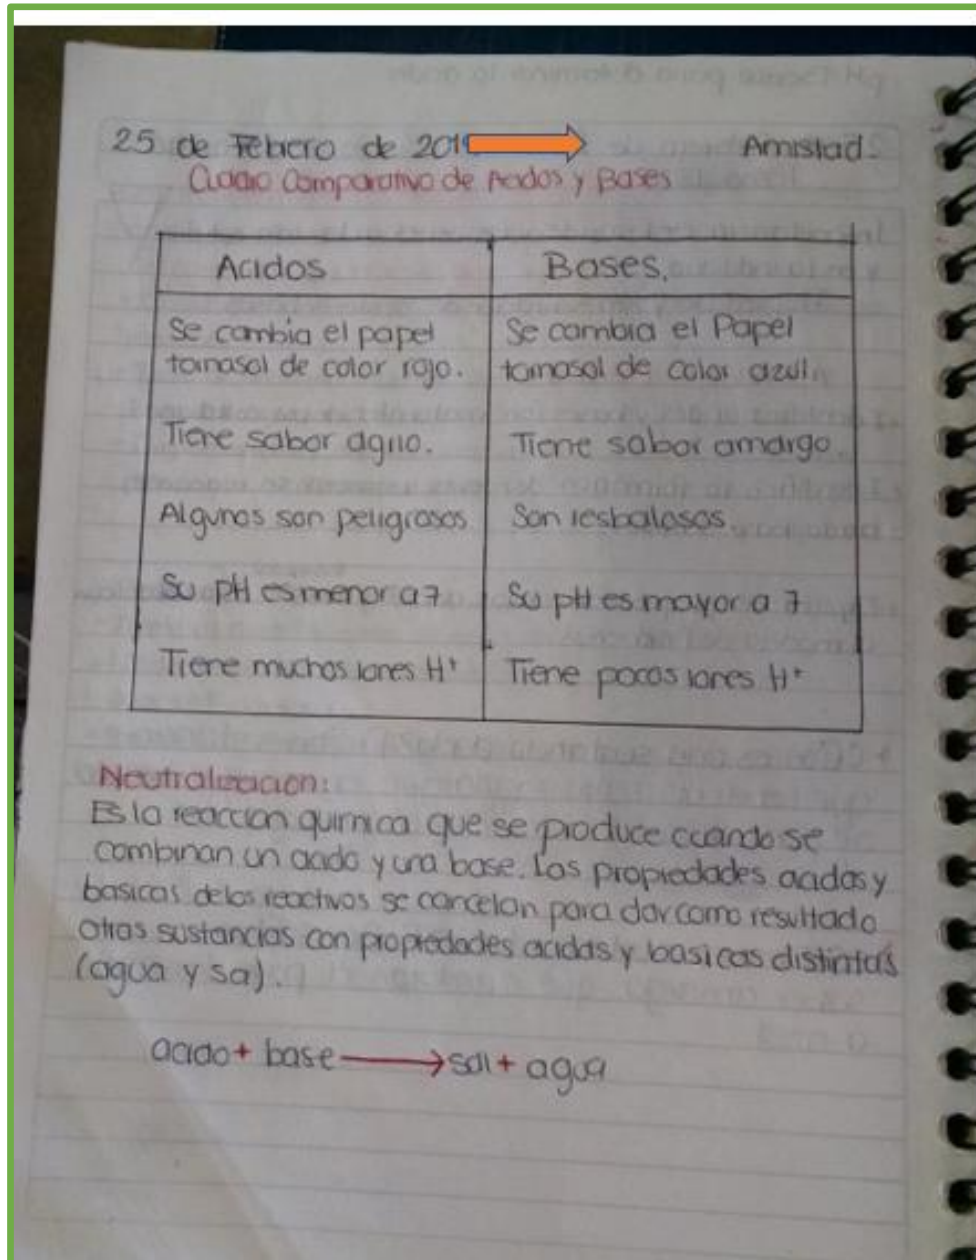 25 de Febrero de 201 Amistad.
Cuadro Comparativo de Acidos y Bases
Acidos Bases.
Se cambia el papel Se cambia el Papel
tornasol de color rojo. tornasol de color azul.
Tiene sabor agrio. Tiene sabor amargo.
Algunos son peligrosos Son resbalosos
Su pH es menor a 7 Su pH es mayor a 7
Tiene muchos iones H⁺ Tiene pocos iones H⁺
Neutralizacion:
Es la reaccion quimica que se produce cuando se
combinan un acido y una base. Las propiedades acidas y
basicas de los reactivos se cancelan para dar como resultado
otras sustancias con propiedades acidas y basicas distintas
(agua y sal).
acido + base → sal + agua